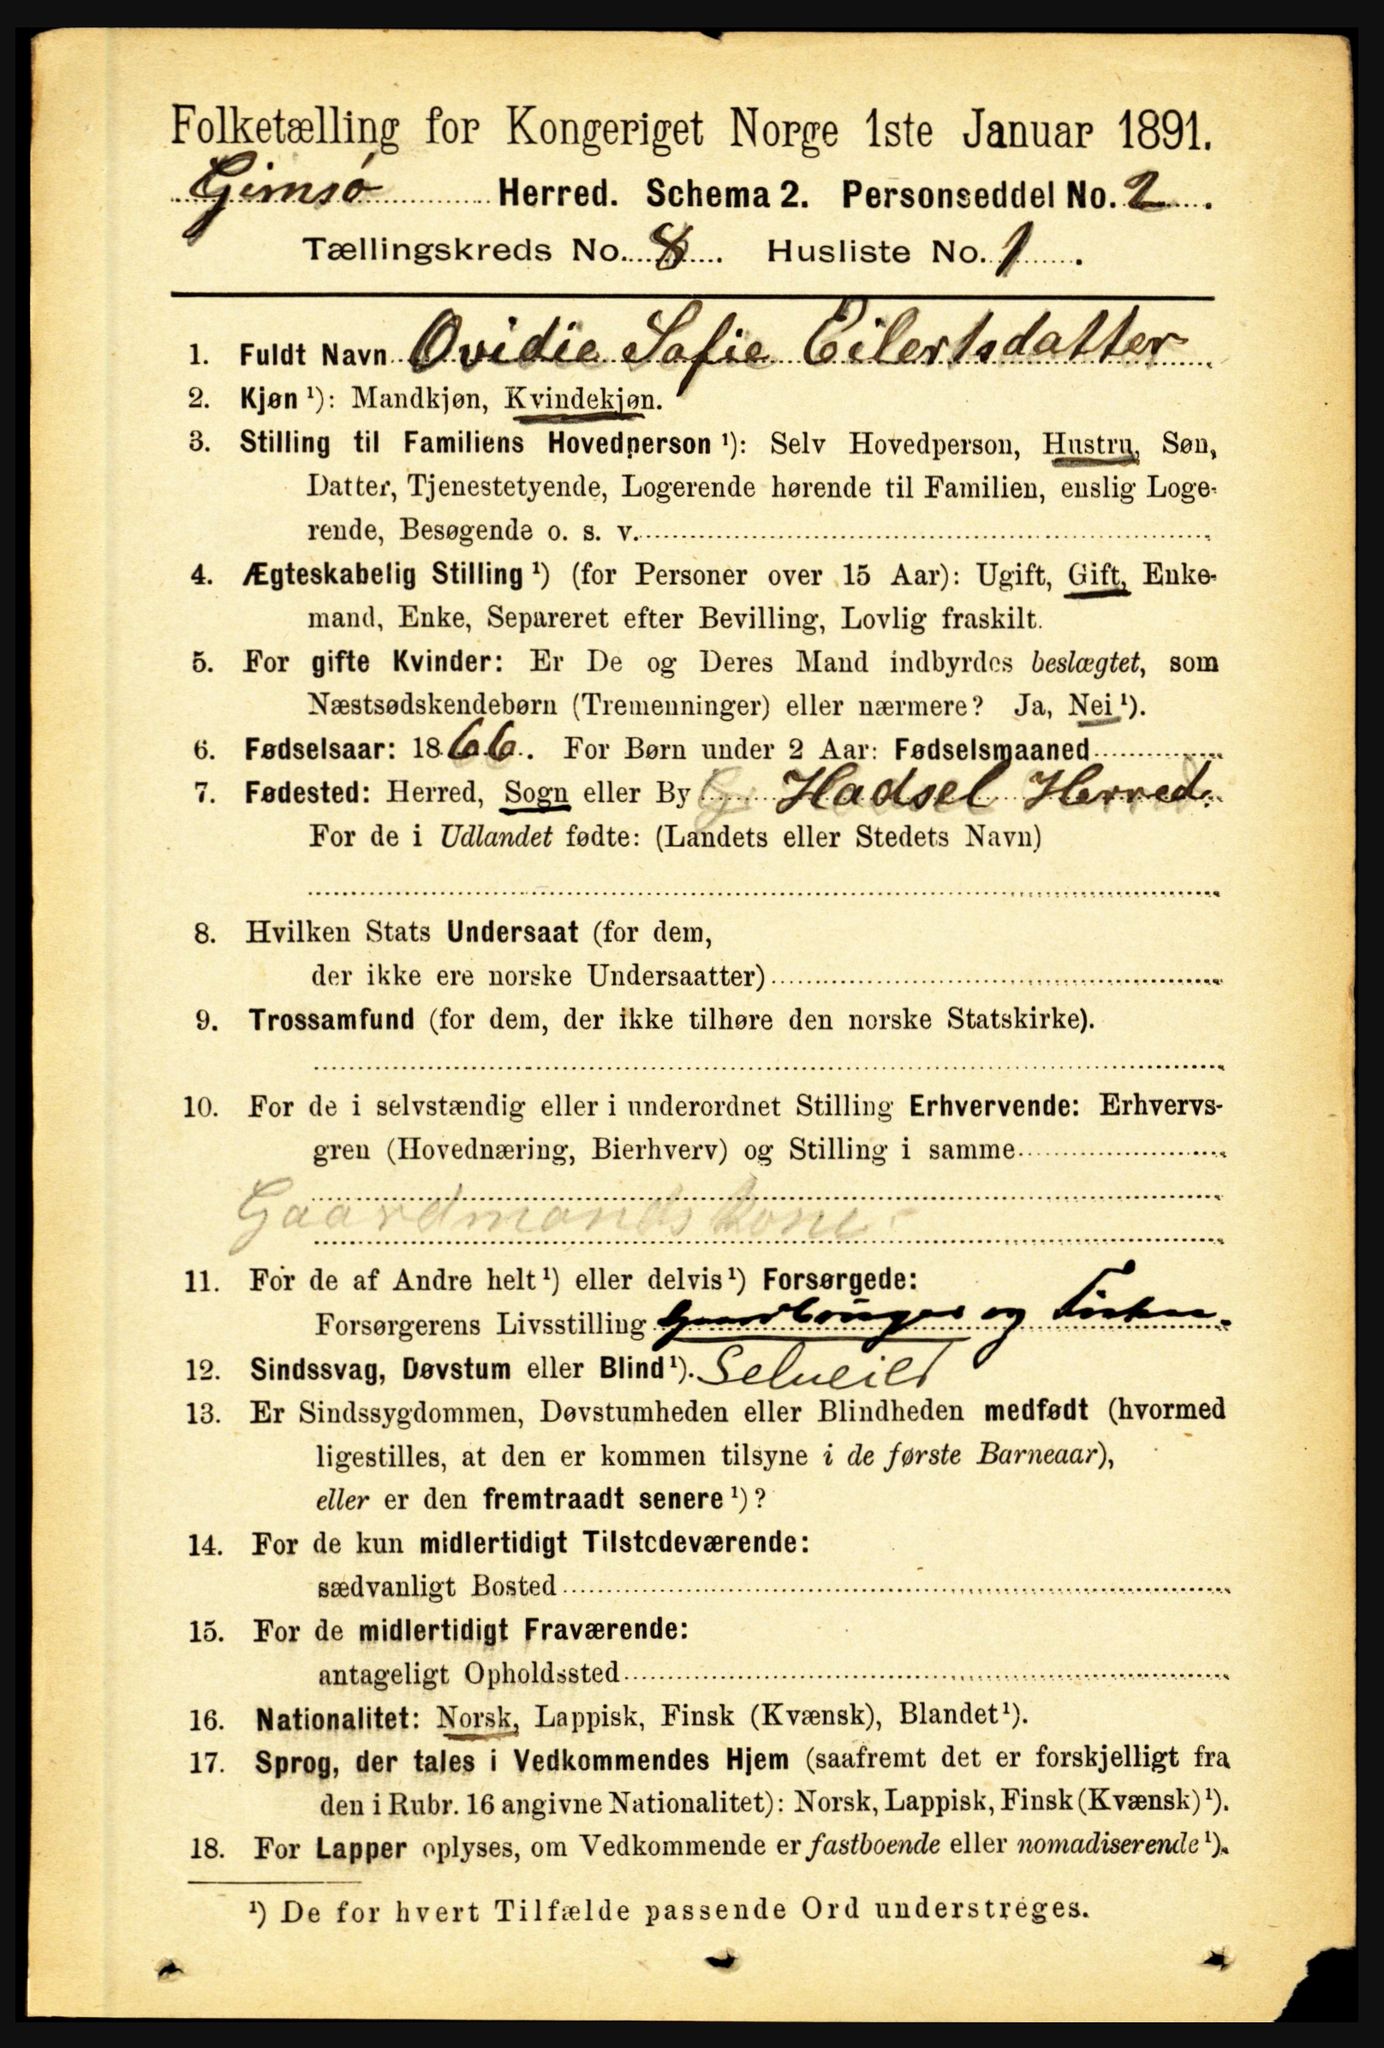 Folketælling for Kongeriget Norge 1ste Januar 1891.
Gimsø Herred. Schema 2. Personseddel No. 2.
Tællingskreds No. 8. Husliste No. 1.
1. Fuldt Navn Ovidie Sofie Eilertsdatter
2. Kjøn ¹): Mandkjøn, Kvindekjøn.
3. Stilling til Familiens Hovedperson ¹): Selv Hovedperson, Hustru, Søn,
Datter, Tjenestetyende, Logerende hørende til Familien, enslig Loge-
rende, Besøgende o. s. v.
4. Ægteskabelig Stilling ¹) (for Personer over 15 Aar): Ugift, Gift, Enke-
mand, Enke, Separeret efter Bevilling, Lovlig fraskilt.
5. For gifte Kvinder: Er De og Deres Mand indbyrdes beslægtet, som
Næstsødskendebørn (Tremenninger) eller nærmere? Ja, Nei ¹).
6. Fødselsaar: 1866. For Børn under 2 Aar: Fødselsmaaned
7. Fødested: Herred, Sogn eller By Hadsel Herred.
For de i Udlandet fødte: (Landets eller Stedets Navn)
8. Hvilken Stats Undersaat (for dem,
der ikke ere norske Undersaatter)
9. Trossamfund (for dem, der ikke tilhøre den norske Statskirke).
10. For de i selvstændig eller i underordnet Stilling Erhvervende: Erhvervs-
gren (Hovednæring, Bierhverv) og Stilling i samme
Gaardmandskone
11. For de af Andre helt ¹) eller delvis ¹) Forsørgede:
Forsørgerens Livsstilling Gaardbruger og Fisker.
12. Sindssvag, Døvstum eller Blind ¹). Selveier
13. Er Sindssygdommen, Døvstumheden eller Blindheden medfødt (hvormed
ligestilles, at den er kommen tilsyne i de første Barneaar),
eller er den fremtraadt senere ¹)?
14. For de kun midlertidigt Tilstedeværende:
sædvanligt Bosted
15. For de midlertidigt Fraværende:
antageligt Opholdssted
16. Nationalitet: Norsk, Lappisk, Finsk (Kvænsk), Blandet ¹).
17. Sprog, der tales i Vedkommendes Hjem (saafremt det er forskjelligt fra
den i Rubr. 16 angivne Nationalitet): Norsk, Lappisk, Finsk (Kvænsk) ¹).
18. For Lapper oplyses, om Vedkommende er fastboende eller nomadiserende ¹).
¹) De for hvert Tilfælde passende Ord understreges.